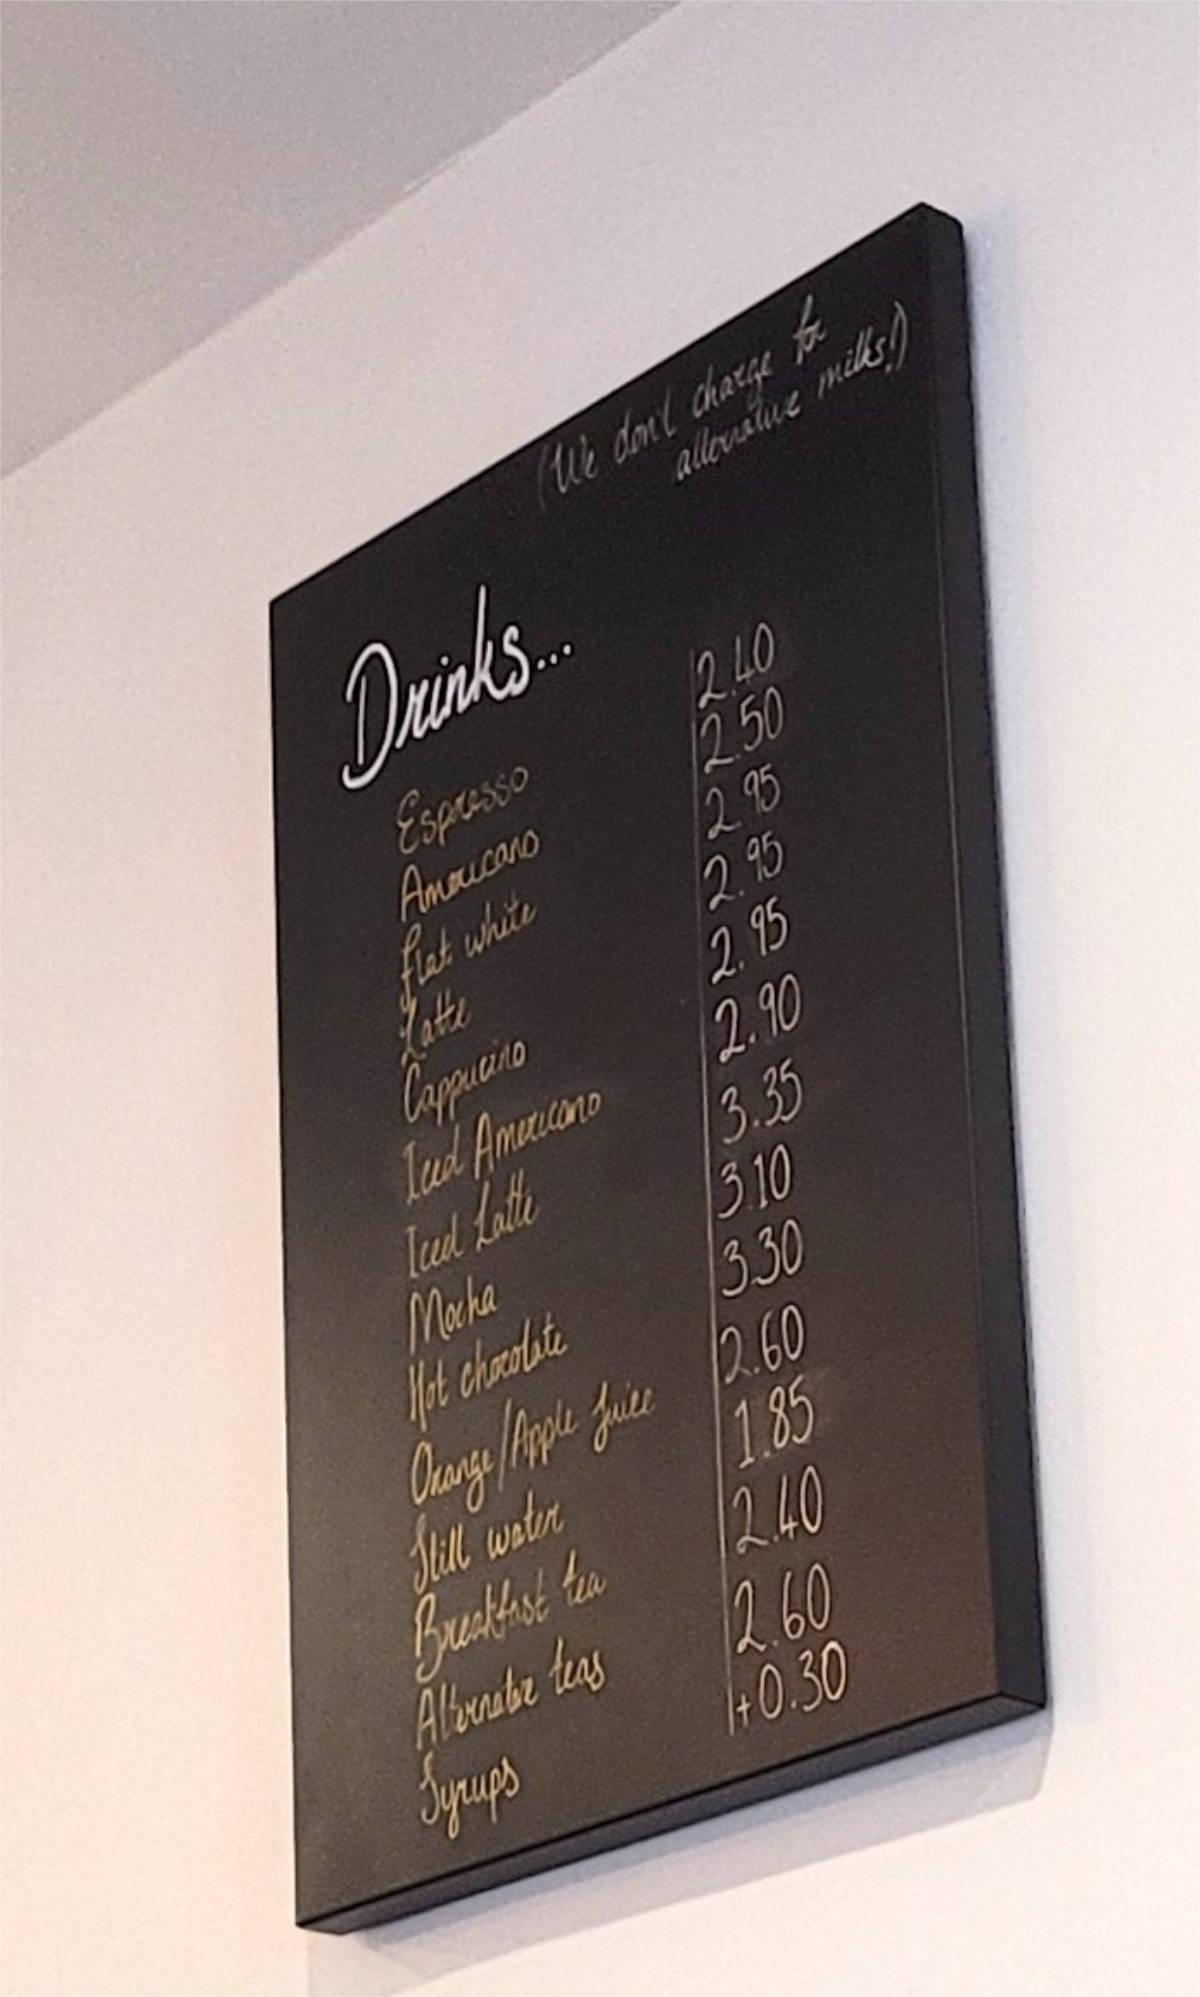 (We don't charge for
alternative milks!)
Drinks...
Espresso 2.40
Americano 2.50
Flat white 2.95
Latte 2.95
Cappucino 2.95
Iced Americano 2.90
Iced Latte 3.35
Mocha 3.10
Hot chocolate 3.30
Orange/Apple Juice 2.60
Still water 1.85
Breakfast tea 2.40
Alternative teas 2.60
Syrups +0.30